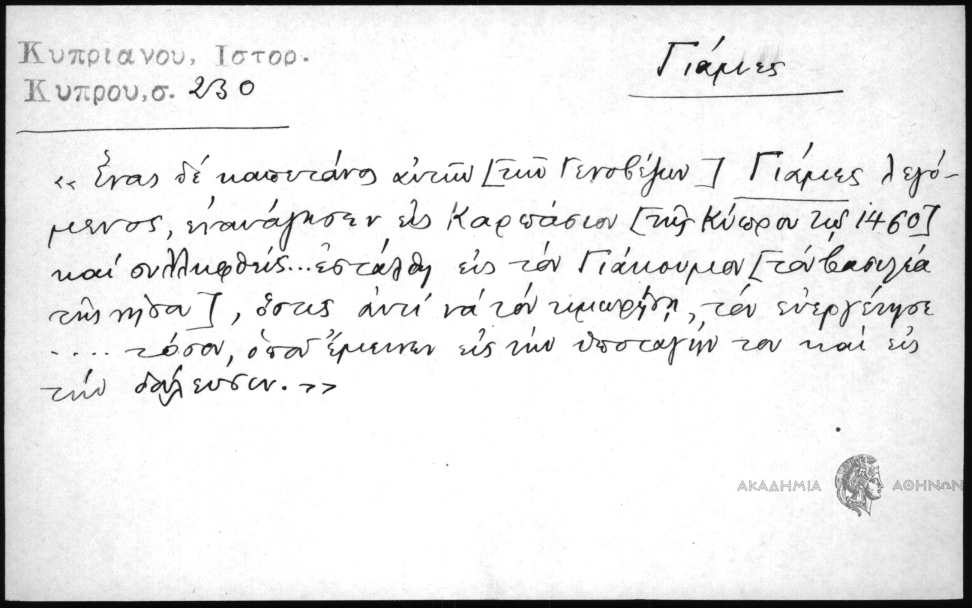 Κυπριανου, Ιστορ.
Κυπρου, σ. 230
Γιάμιες
« Ἕνας δέ καπετάνος αὐτῶν [τῶν Γενοβέζων] Γιάμιες λεγό-
μενος, ἐπανάγησεν εἰς Καρπάσιον [τῆς Κύπρου τῷ 1460]
καί συλληφθείς... ἐστάλθη εἰς τόν Γιάκουμον [τόν βασιλέα
τῆς νήσου], ὅστις ἀντί νά τόν τιμωρήσῃ, τόν εὐεργέτησε
.... τόσον, ὁποῦ ἔμεινεν εἰς τήν ὑποταγήν του καί εἰς
τήν δούλευσιν. »
ΑΚΑΔΗΜΙΑ ΑΘΗΝΩΝ